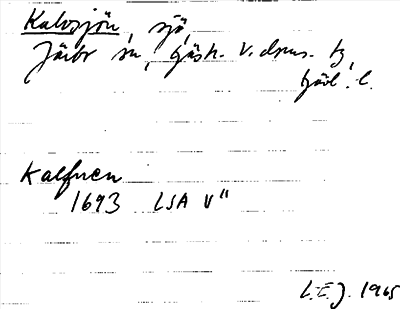 Kalvsjön, sjö,
Järbo sn, Gästr. V. dms. tg,
Gävl. l.
Kalfuen
1693 LSA V"
L.E.J. 1965